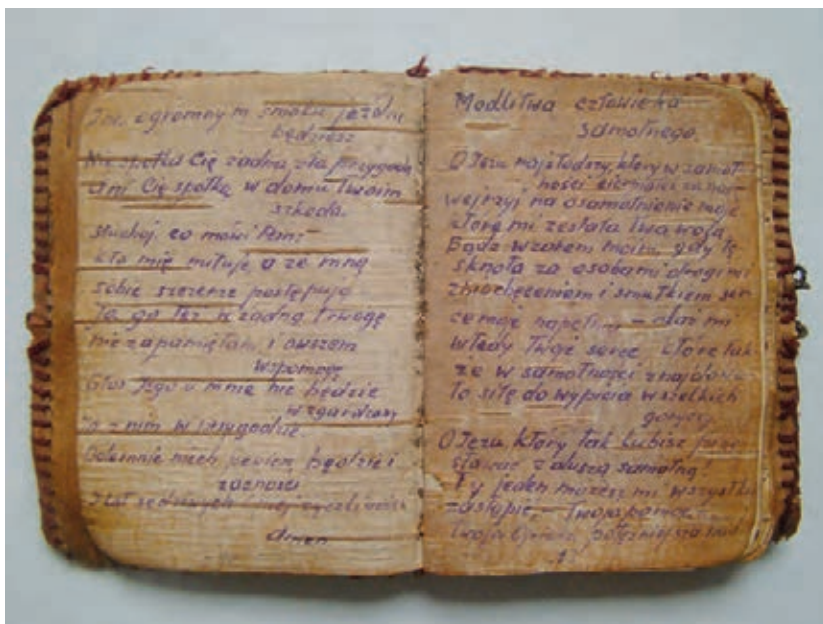 I na ogromnym smoku jeździć
będziesz
Nie spotka Cię żadna zła przygoda
ani Cię spotka w domu Twoim
szkoda.
Słuchaj, co mówi Pan:
kto mię miłuje, a ze mną
sobie szczerze postępuje
Ja go też w żadną trwogę
nie zapamiętam, i owszem
wspomogę
Głos jego u mnie nie będzie
wzgardzony
Ja z nim w przygodzie
niech pewien będzie i
zacności
I lat sędziwych i mej życzliwości
Amen
Modlitwa człowieka
samotnego.
O Jezu najsłodszy, który w samot-
ności cierpiałeś za nas
wejrzyj na osamotnienie moje
które mi zesłała Twa wola
Bądź wzorem moim, gdy tę-
sknota za osobami drogimi
zniechęceniem i smutkiem ser-
ce moje napełni – daj mi
wtedy Twoje serce, które tak-
że w samotności znajdowa-
ło siłę do wypicia wszelkich
goryczy.
O Jezu, który tak lubisz prze-
stawać z duszą samotną!
Ty jeden możesz mi wszystko
zastąpić, – Twoja pomoc –
Twoja Opieka potężniejsza